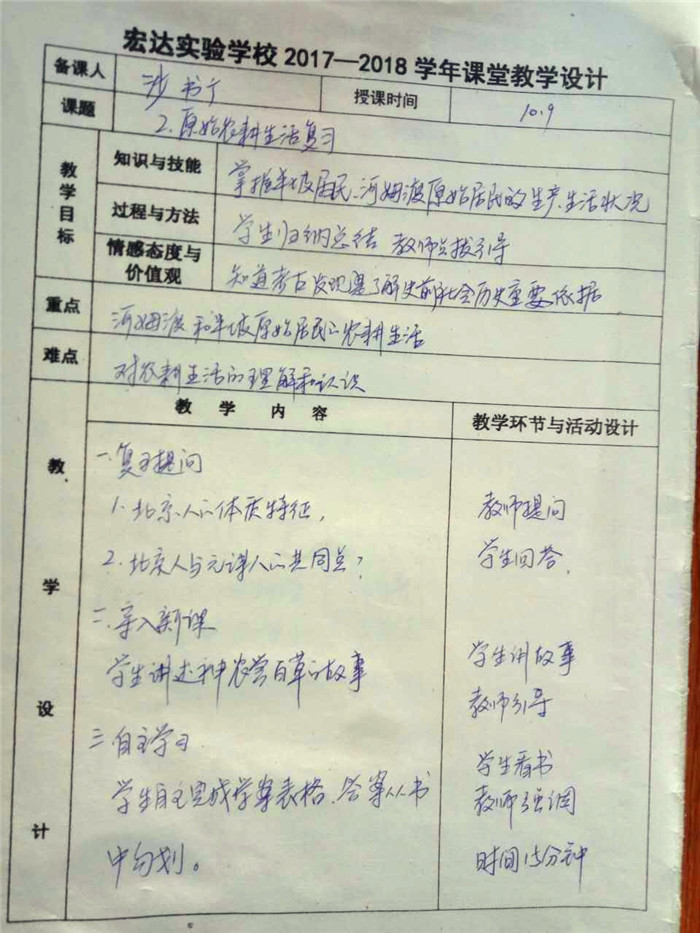 宏达实验学校2017—2018学年课堂教学设计
备课人 沙书广 授课时间 10.9
课题 2.原始农耕生活复习
教学目标
知识与技能 掌握半坡居民、河姆渡原始居民的生产、生活状况
过程与方法 学生归纳总结 教师点拨引导
情感态度与价值观 知道考古发现是了解史前社会历史重要依据
重点 河姆渡和半坡原始居民的农耕生活
难点 对农耕生活的理解和认识
教学内容 教学环节与活动设计
教学设计
一.复习提问
1.北京人的体质特征, 教师提问
2.北京人与元谋人的共同点? 学生回答.
二.导入新课
学生讲述神农尝百草的故事 学生讲故事
教师引导
三.自主学习 学生看书
学生自主完成学案表格.答案从书 教师强调
中勾划。 时间15分钟